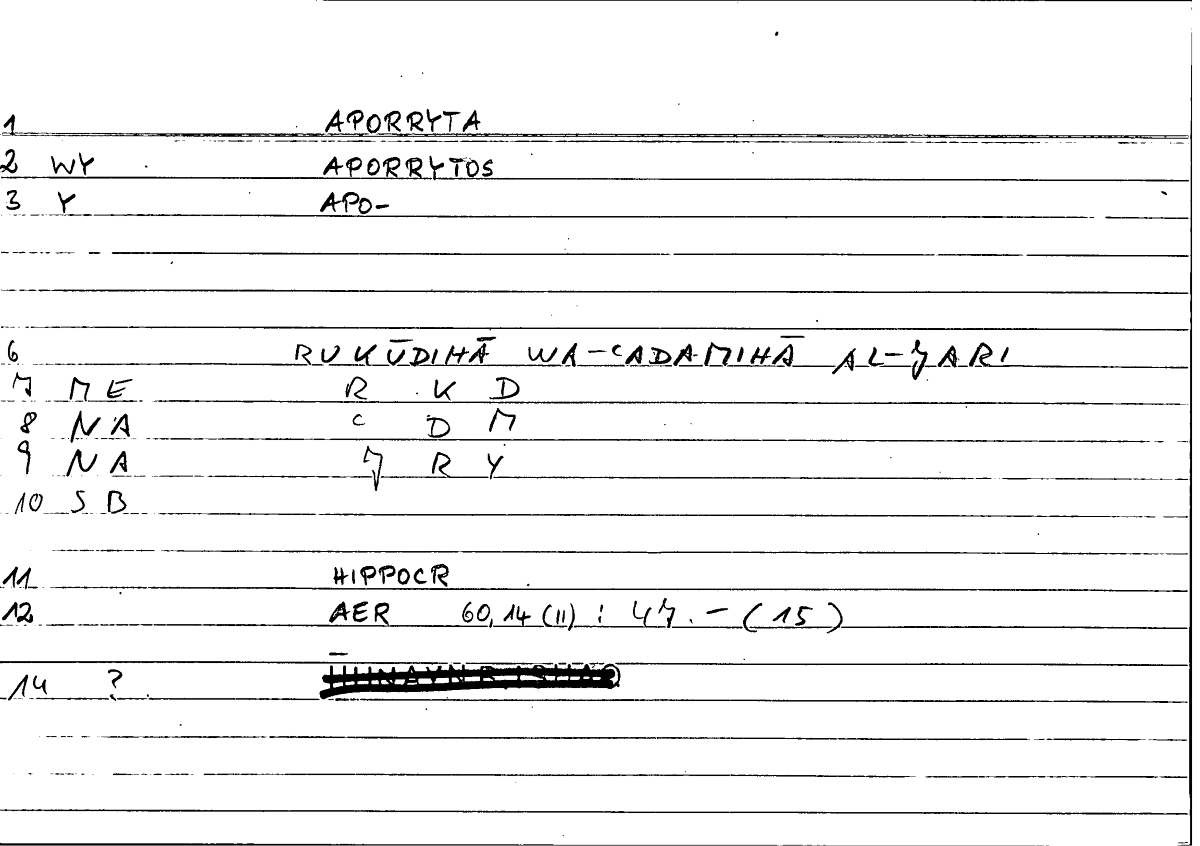 1 APORRYTA
2 WY APORRYTOS
3 Y APO-
6 RUKŪDIHĀ WA-CADAMIHĀ AL-ȷARI
7 ME R K D
8 NA C D M
9 NA J R Y
10 SB
11 HIPPOCR
12 AER 60,14 (11) : 47. - (15)
14 ?